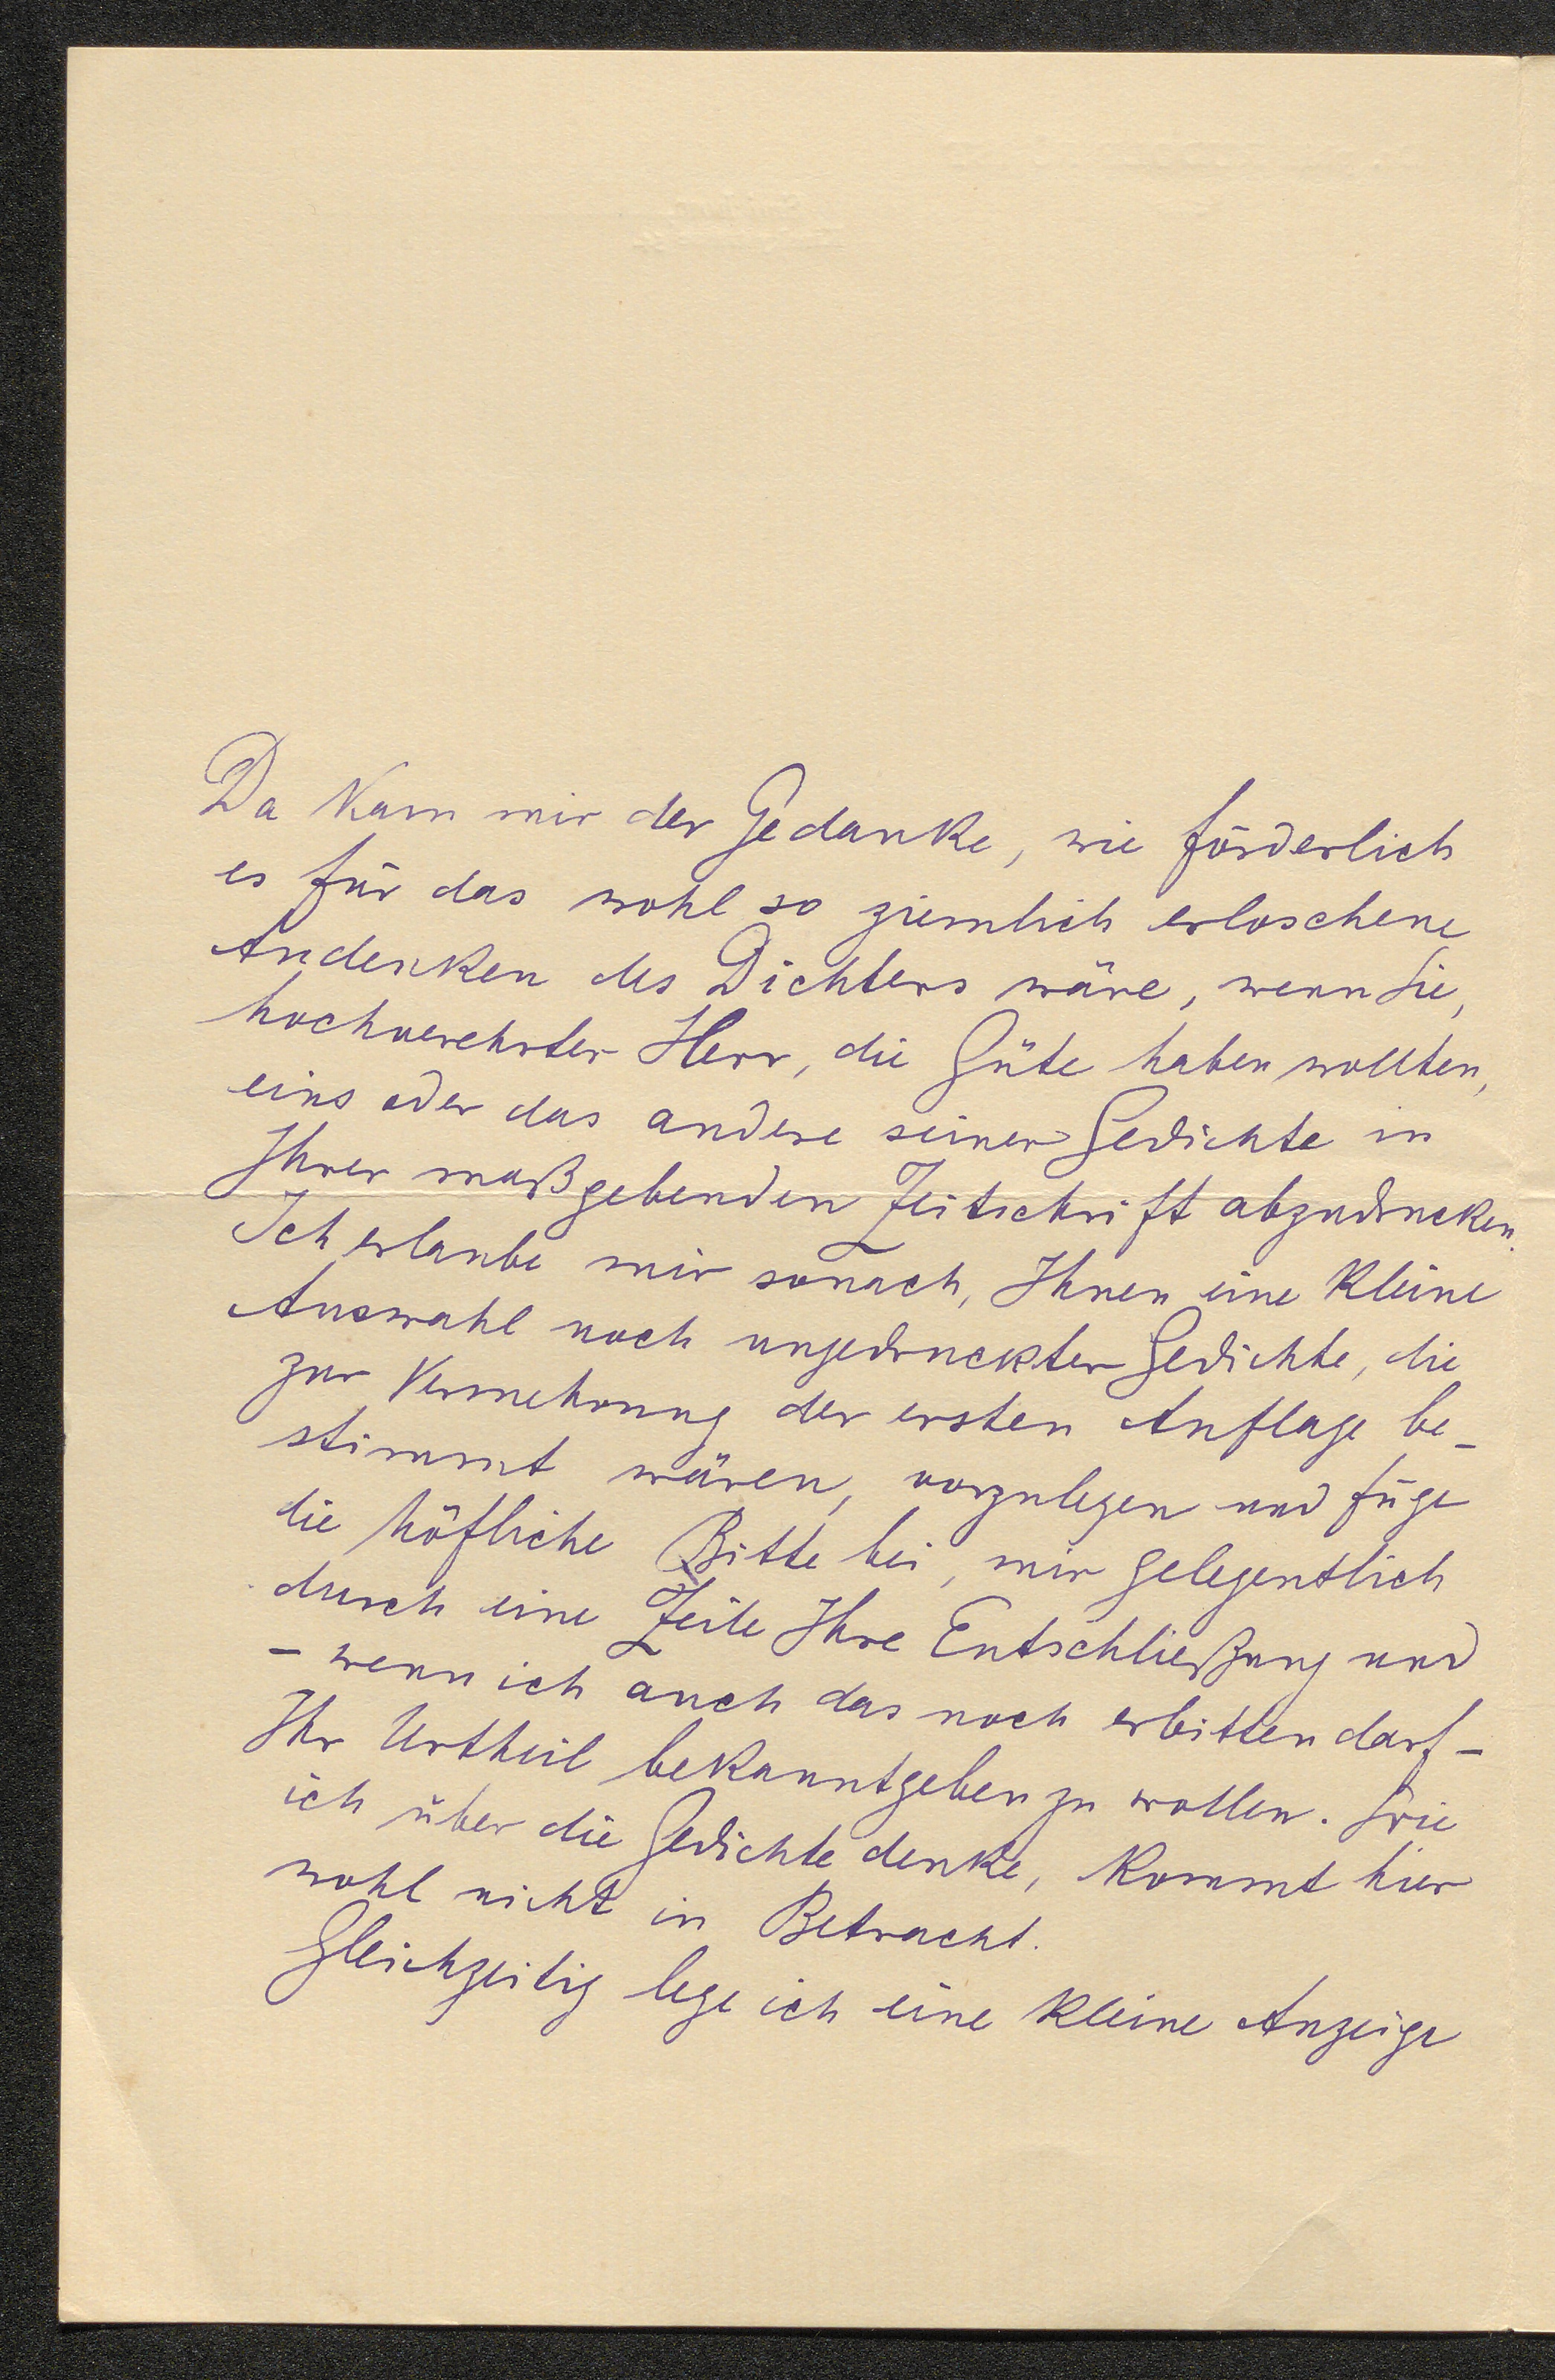 Da kam mir der Gedanke, wie förderlich
es für das wohl so ziemlich erloschene
Andenken des Dichters wäre, wenn Sie,
hochverehrter Herr, die Güte haben wollten,
eins oder das andere seiner Gedichte in
Ihrer maßgebenden Zeitschrift abzudrucken.
Ich erlaube mir sonach, Ihnen eine kleine
Auswahl noch ungedruckter Gedichte, die
zur Vermehrung der ersten Auflage be-
stimmt wären, vorzulegen und füge
die höfliche Bitte bei, mir gelegentlich
durch eine Zeile Ihre Entschließung und
– wenn ich auch das noch erbitten darf –
Ihr Urtheil bekanntgeben zu wollen. Wie
ich über die Gedichte denke, kommt hier
wohl nicht in Betracht.
Gleichzeitig lege ich eine kleine Anzeige